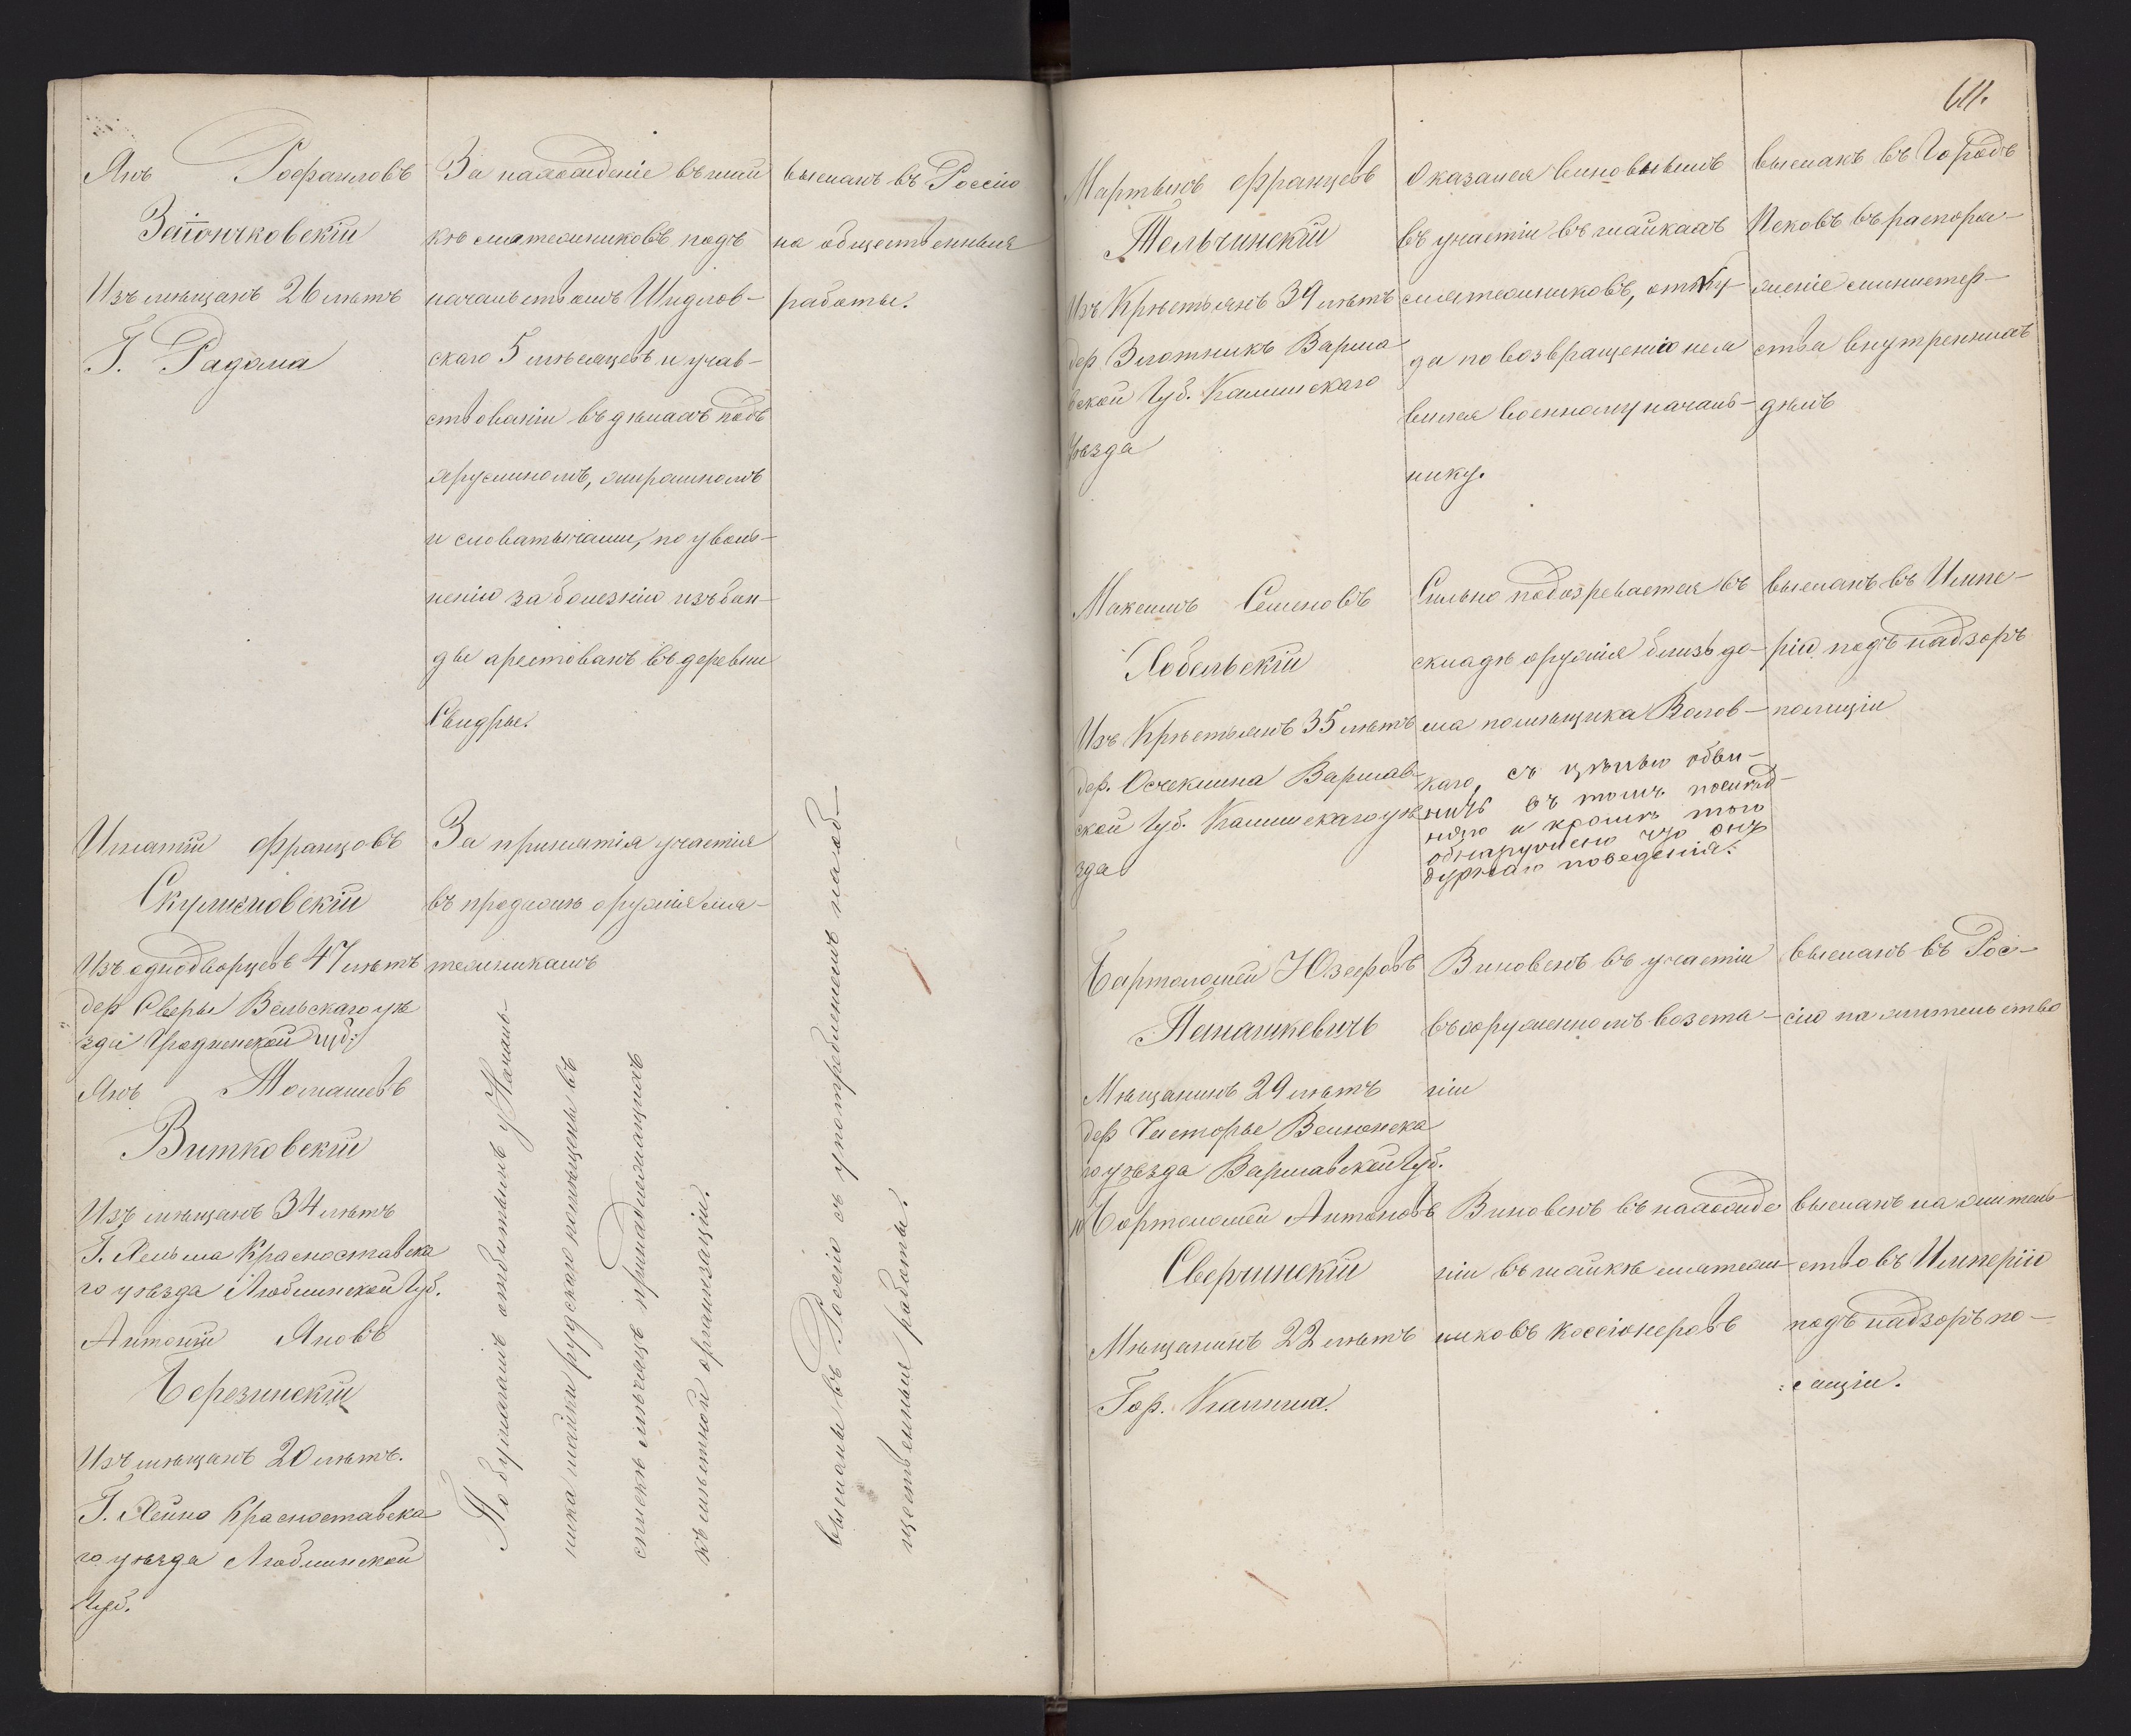 Янъ Рафаиловъ
Заіончковскій
Изъ мѣщанъ 26 лѣтъ
Г. Радома
За нахожденіе въ шай
кѣ мятежниковъ подъ
начальствомъ Шидлов-
скаго 5 мѣсяцевъ и учав-
ствованіи въ дѣлахъ подъ
и словатычами, по уволь-
ненію за болезнію изъ бан-
ды арестованъ въ деревни
Свидры.
высланъ въ Россію
на общественныя
работы.
Игнатій Францовъ
Изъ однодворцевъ 47 лѣтъ
дер Сверы Бельскаго уѣ
зда Гродненской губ.
За принятія участія
въ продажѣ оружія мя-
тежникамъ
Янъ Томашевъ
Витковскій
Изъ мѣщанъ 34 лѣтъ
Г. Хельма Красноставска
го уѣзда Люблинской Губ.
Антоній Яновъ
Березинскій
Изъ мѣщанъ 20 лѣтъ.
Г. Хейно Красноставска
го уѣзда Люблинской
Губ.
По бумагамъ отбитымъ у Началь-
ника шайки Рудскаго помѣщены въ
спискѣ лицъ принадлежащихъ
къ мѣстной организаціи.
высланы въ Россію съ употребленіемъ на об-
щественныя работы.
611.
Мартынъ Францевъ
Тольчинскій
Изъ Крѣстьянъ 39 лѣтъ
дер Злотникъ Варша
вской Губ. Калишскаго
Уѣзда
Оказался виновнымъ
въ участіи въ шайкахъ
мятежниковъ, отку-
да по возвращенію не я
вился военному началь-
нику.
высланъ въ Городъ
Псковъ въ распоря-
женіе министер-
ства внутреннихъ
дѣлъ
Максимъ Семеновъ
Хобельскій
Изъ Крѣстьянъ 35 лѣтъ
дер. Осчеклина Варшав-
ской Губ. Калишскаго уѣ
зда
Сильно подозревается въ
складѣ оружія близь до-
ма помѣщика Волов-
каго, съ цѣлью обви-
нить въ томъ послѣд-
няго и кромѣ того
обнаружено что онъ
дурнаго поведенія.
высланъ въ Импе-
рію подъ надзоръ
полиціи
Бартоломей Юзефовъ
Панашкевичъ
Мѣщанинъ 29 лѣтъ
дер Чисторье Велюнска
го уѣзда Варшавской Губ.
Виновенъ въ участіи
въ оруженномъ возста-
ніи
высланъ въ Рос-
сію на жительство
Бортоломей Антоновъ
Сверчинскій
Мѣщанинъ 22 лѣтъ
Гор. Калиша.
Виновенъ въ нахожде
ніи въ шайкѣ мятеж-
никовъ коссіонеровъ
высланъ на житель-
ство въ Имперіи
подъ надзоръ по-
лиціи.